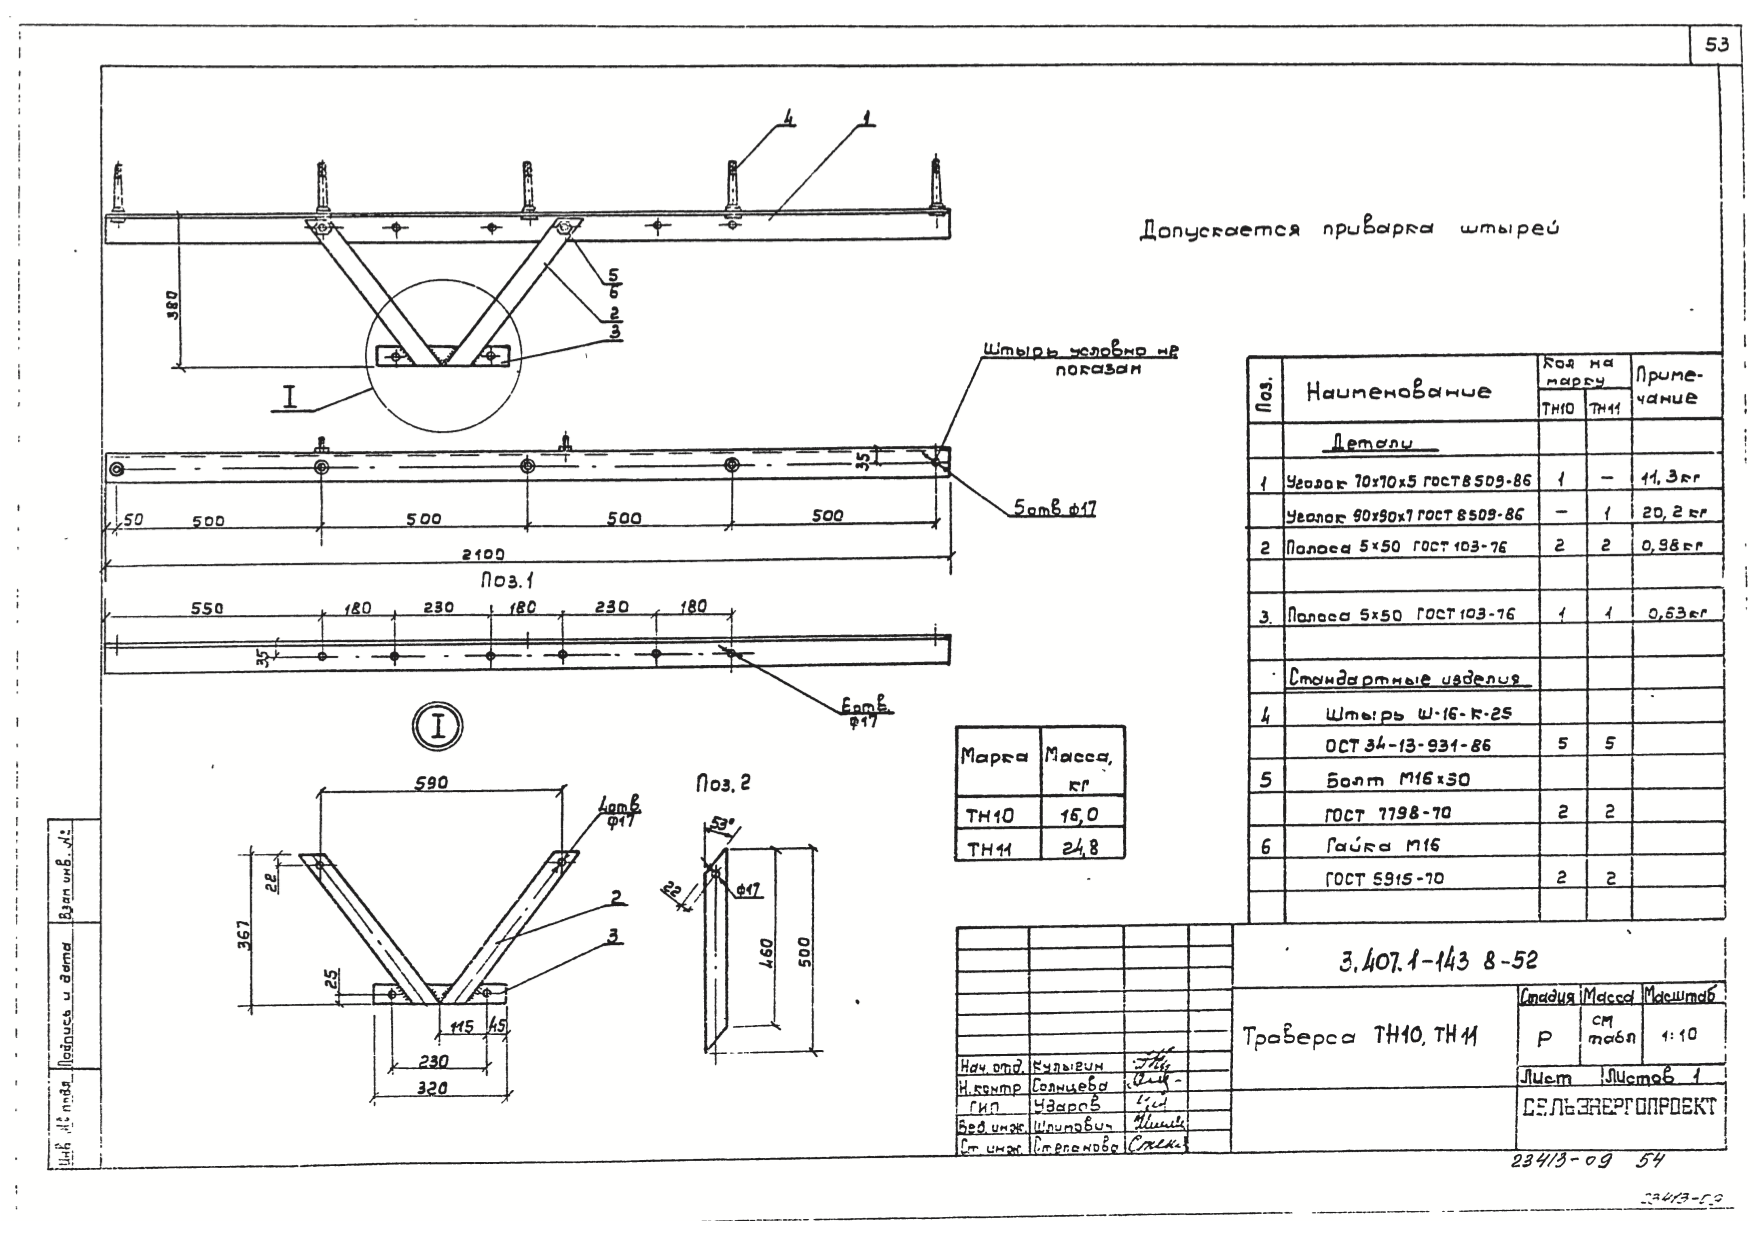 53
4
1
Допускается приварка штырей
380
5
6
2
3
I
Штырь условно не
показан
35
5отв ф17
50
500
500
500
500
2100
Поз.1
550
180
230
180
230
180
35
6отв.
ф17
I
590
4отв.
ф17
22
367
25
2
3
115
45
230
320
Поз. 2
53°
22
ф17
460
500
Марка
Масса,
кг
ТН10
16,0
ТН11
24,8
Поз.
Наименование
Кол на
марку
ТН10
ТН11
Приме-
чание
Детали
1 Уголок 70х70х5 ГОСТ 8509-86 1 — 11,3кг
Уголок 90х90х7 ГОСТ 8509-86 — 1 20,2кг
2 Полоса 5х50 ГОСТ 103-76 2 2 0,98кг
3. Полоса 5х50 ГОСТ 103-76 1 1 0,63кг
Стандартные изделия
4 Штырь Ш-16-К-25
ОСТ 34-13-931-86 5 5
5 Болт М16х30
ГОСТ 7798-70 2 2
6 Гайка М16
ГОСТ 5915-70 2 2
3.407.1-143 8-52
Траверса ТН10, ТН11
Стадия Масса Масштаб
Р
см
табл
1:10
Лист Листов 1
СЕЛЬЭНЕРГОПРОЕКТ
Нач. отд. Кулыгин
Н.контр Солнцева
ГИП Ударов
Вед. инж. Шпитович
Ст инж. Степанова
Взам инв. №
Подпись и дата
Инв № подл
23413-09 54
23413-09